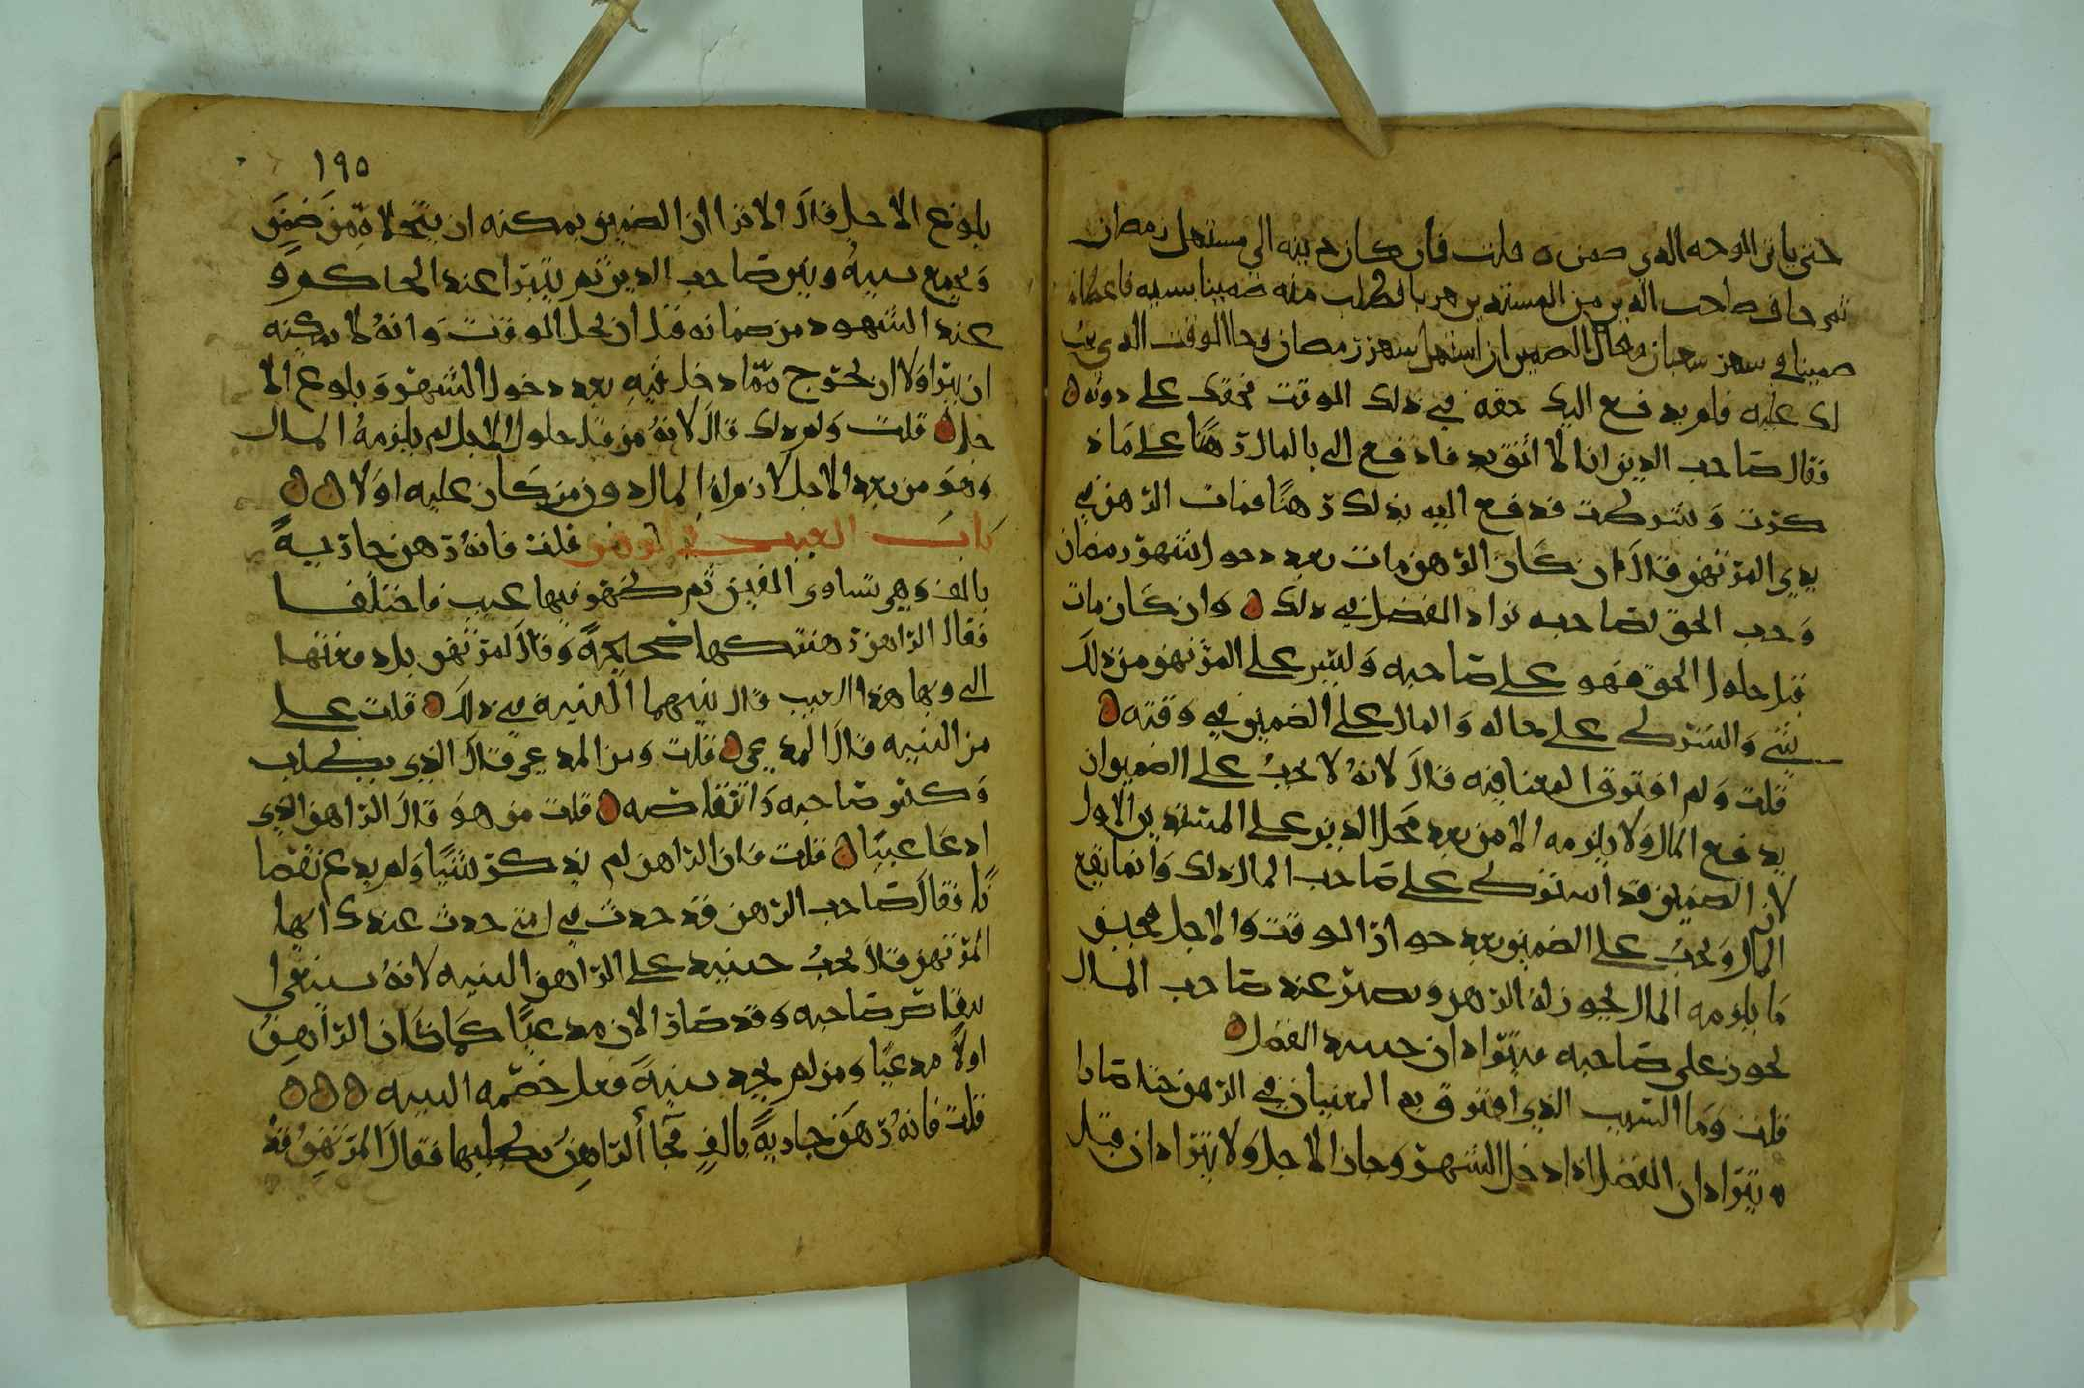 حتى ياتي الوجه الذي ضمن ه قلت فان كان دينه الى مستهل رمضان
ثم خاف صاحب الدين من المستدين هربا فطلب منه ضمينا بسببه فاعطاه
ضمينا في شهر شعبان وقال الضمين ان استهل شهر رمضان وجا الوقت الذي يجب
لك عليه فلم يدفع اليك حقه في ذلك الوقت فحقك علي دونه ه
فقال صاحب الدين انا لا اثق بك فادفع الي بالمال رهنا على ما ذ
كرت وشرطت فدفع اليه بذلك رهنا فمات الرهن في
يدي المرتهن قال ان كان الرهن مات بعد دخول شهر رمضان
وجب الحق لصاحبه تراد الفضل في ذلك ه وان كان مات
قبل حلول الحق فهو على صاحبه وليس على المرتهن من ذلك
شي والشرط على حاله والمال على الضمين في وقته ه
قلت ولم افترق المعنا فيه قال لانه لا يجب على الضمين ان
يدفع المال ولا يلزمه الا من بعد محل الدين على المستدين الاول
لان الضمين قد اشترط على صاحب المال ذلك وانما يقع
المال ويجب على الضمين بعد جواز الوقت والاجل فحينئذ
ما يلزمه المال يجوز له الرهن ويصير عند صاحب المال
يجوز على صاحبه فيترادان حينئذ الفضل ه
قلت وما السبب الذي افترق به المعنيان في الرهن حتى صارا
يترادان الفضل اذا دخل الشهر وحان الاجل ولا يترادان قبل
١٩٥
بلوغ الاجل قال الا ترا ان الضمين يمكنه ان يتخلا ممن ضمن
ويجمع بينه وبين صاحب الدين ثم يتبرا عند الحاكم او
عند الشهود من ضمانه قبل ان يحل الوقت وانه لا يمكنه
ان يبرا ولا ان يخرج مما دخل فيه بعد دخول الشهر وبلوغ الا
جل ه قلت ولم ذلك قال لانه من قبل حلول الاجل لم يلزمه المال
وهو من بعد الاجل لازم له المال دون من كان عليه اولا ه ه
باب العيب في الرهن قلت فانه رهن جارية
بالف وهي تساوي الفين ثم ظهر فيها عيب فاختلفا
فقال الراهن رهنتكها صحيحة وقال المرتهن بل دفعتها
الي وبها هذا العيب قال بينهما البينة في ذلك ه قلت على
من البينه قال المدعي ه قلت ومن المدعي قال الذي يطلب
وكس صاحبه وانتقاصه ه قلت من هو قال الراهن الذي
ادعا عيبا ه قلت فان الراهن لم يذكر شيا ولم يدع نقصا
نا فقال صاحب الرهن قد حدث في امتي حدث عندك ايها
المرتهن قال يجب حينئذ على الراهن البينه لانه يبتغي
نقاص صاحبه وقد صار الان مدعيا كما كان الراهن
اولا مدعيا ومن لم يجد بينة فعلى خصمه البينه ه ه ه
قلت فانه رهن جارية بالف فجا الراهن يطلبها فقال المرتهن قد